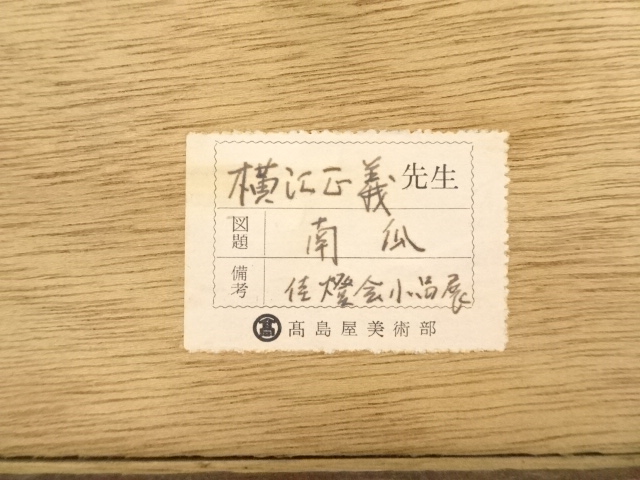 横江正義 先生
図題 南瓜
備考 佳燈会小品展
髙 髙島屋美術部